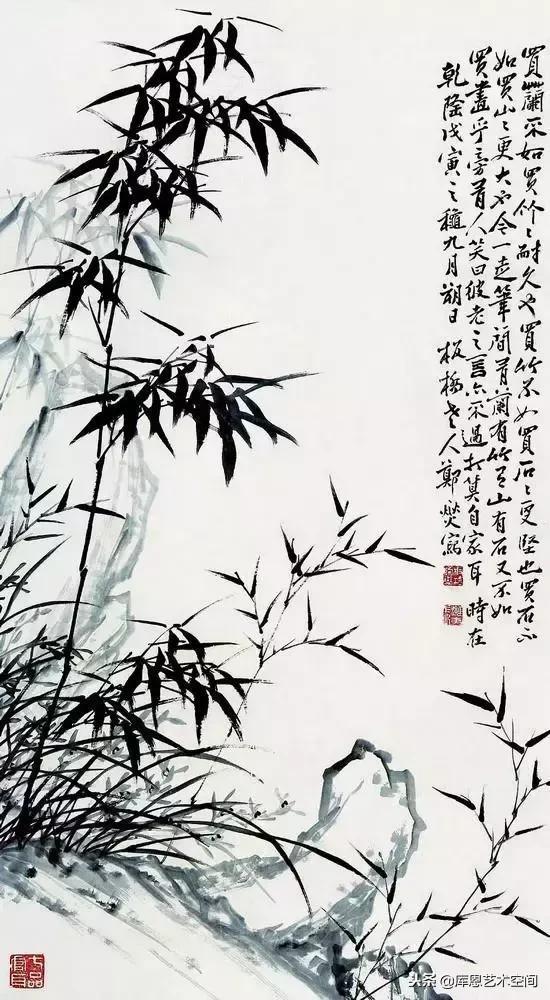 買蘭不如買竹々耐久也買竹不如買石々更堅也買石不
如買山々更大也今一走筆間有蘭有竹有山有石又不如
買畫乎旁有人笑曰彼老之言亦不過打算自家耳時在
乾隆戊寅之穐九月朔日 板橋老人鄭燮寫
七品官耳
头条 @库恩艺术空间